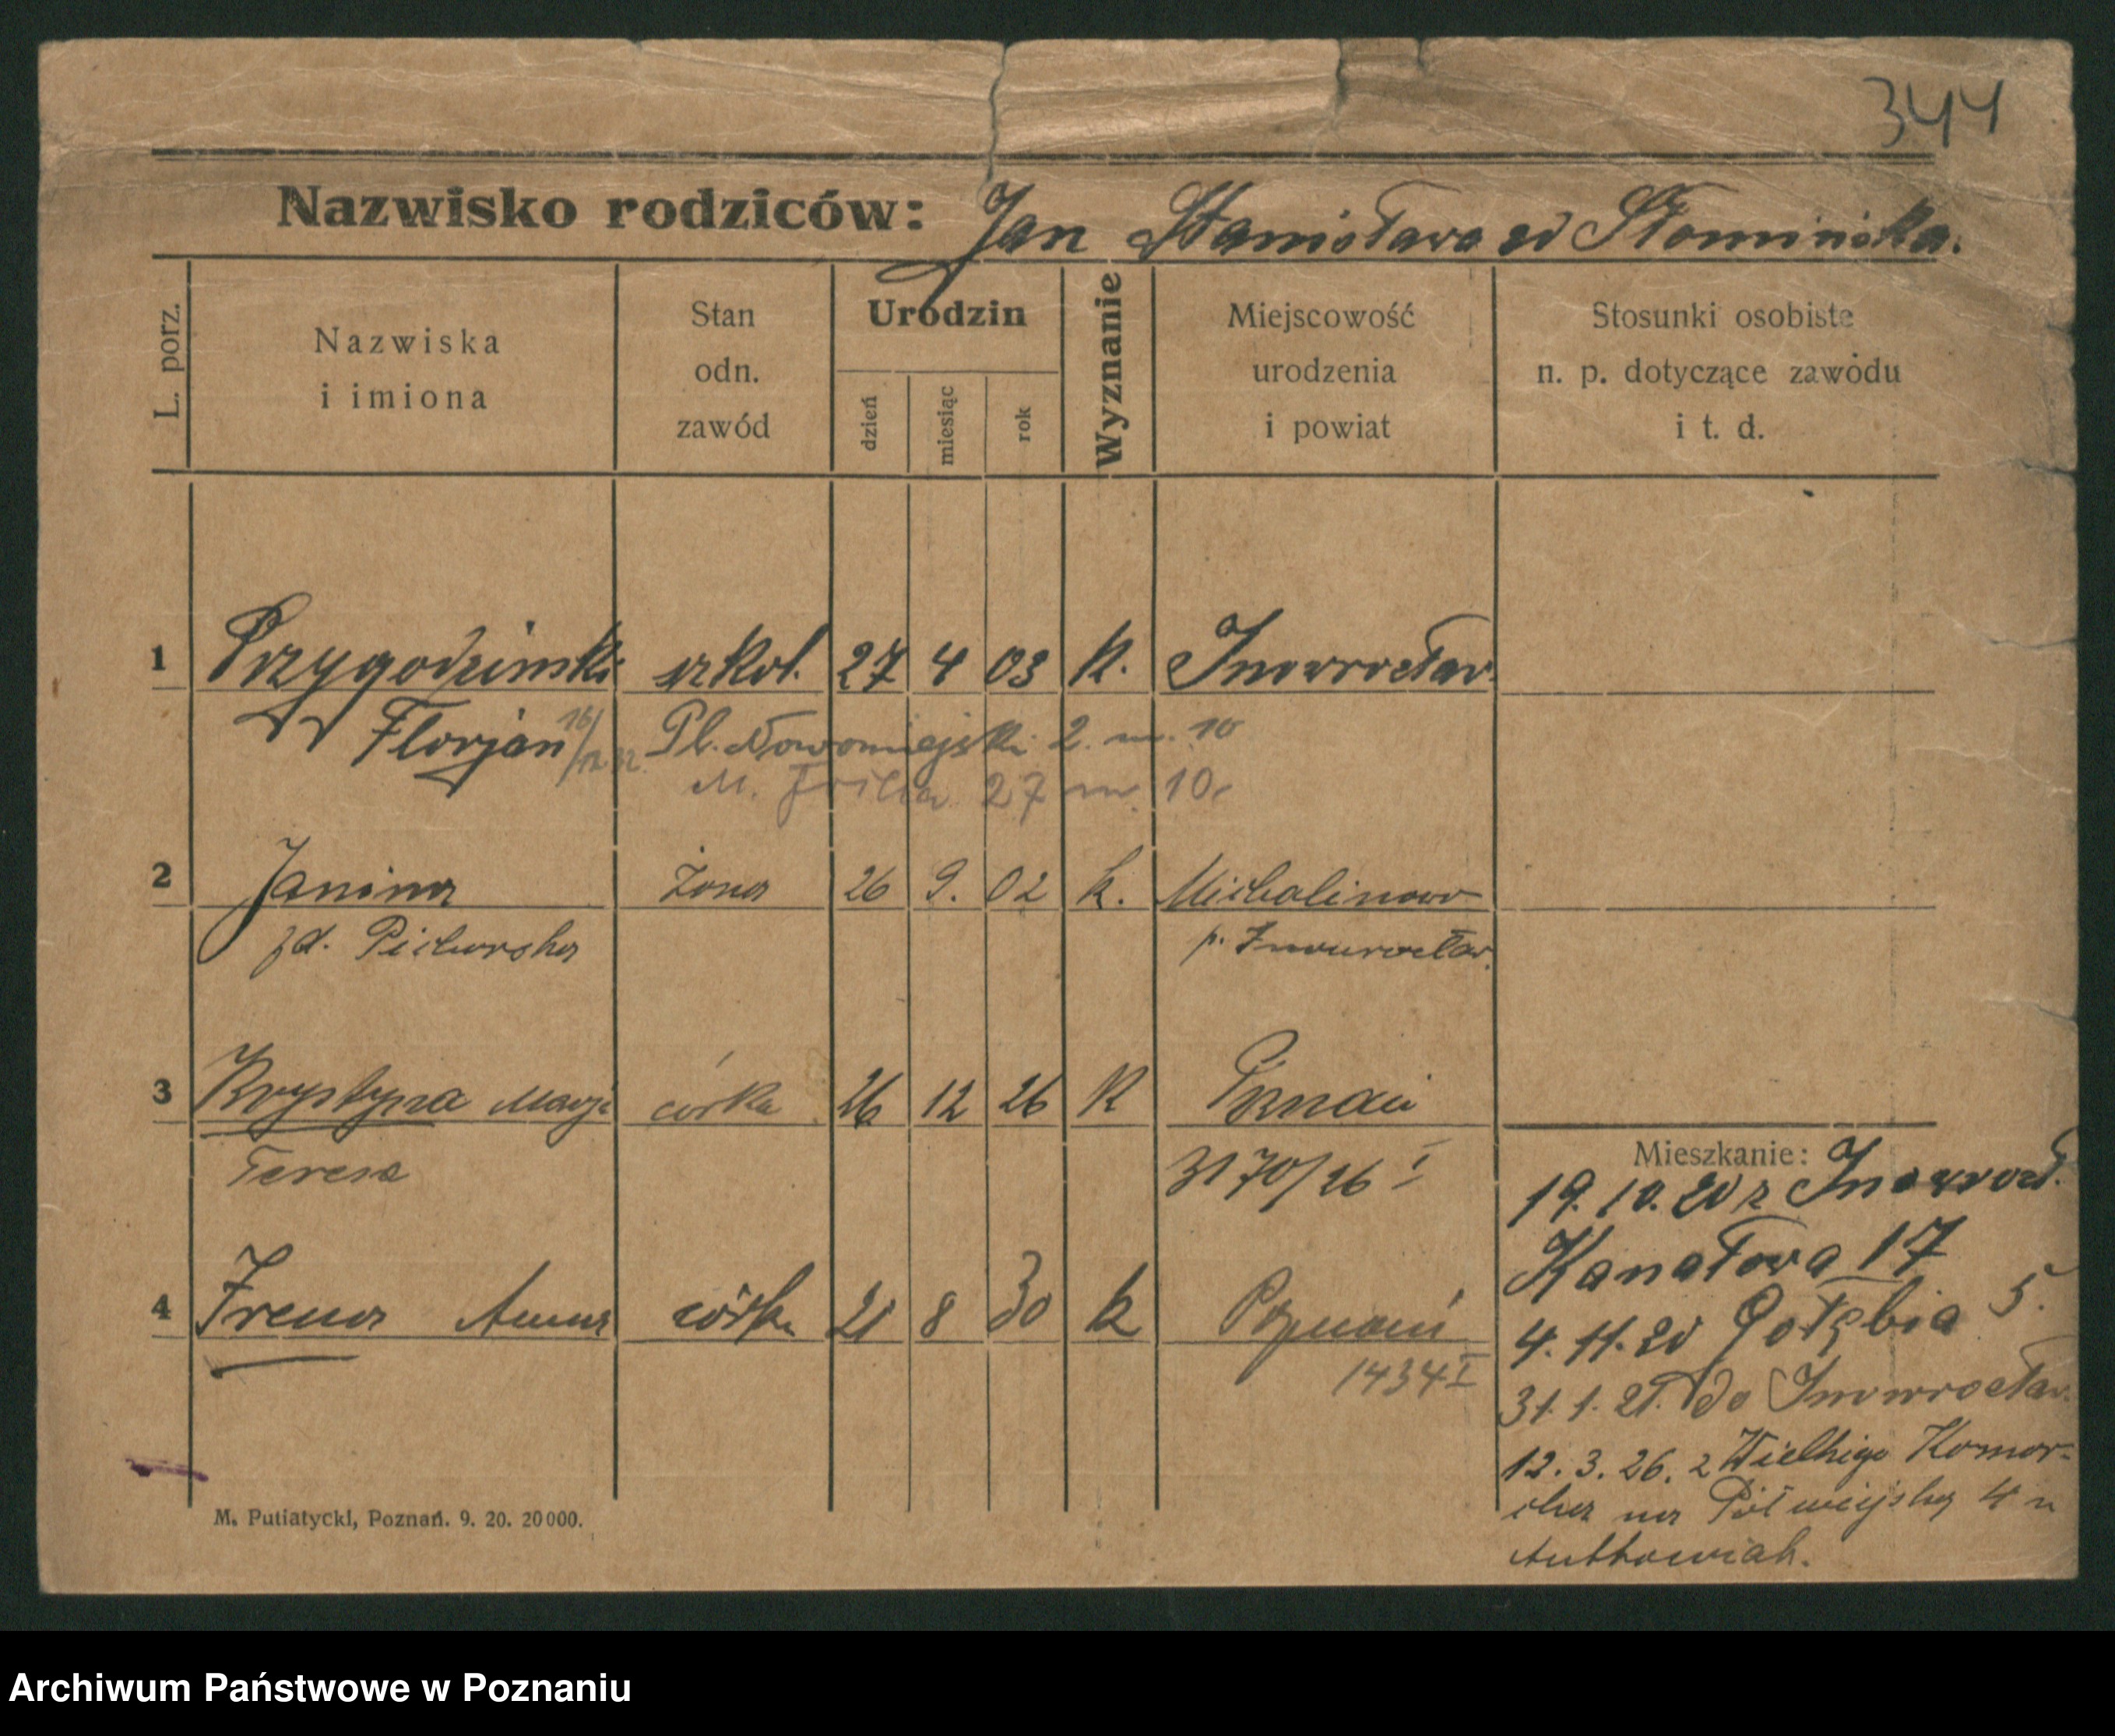 344
Nazwisko rodziców: Jan Stanisława zd Słomińska.
L. porz.
Nazwiska
i imiona
Stan
odn.
zawód
Urodzin
dzień
miesiąc
rok
Wyznanie
Miejscowość
urodzenia
i powiat
Stosunki osobiste
n. p. dotyczące zawodu
i t. d.
1 Przygodzinski szkol. 27 4 03 k. Inowrocław
Florjan Pl. Nowomiejski 2. m. 10
27 m. 10.
2 Janina żona 26 9. 02 k. Michalinowo
zd. Pichorska p. Inowrocław.
3 Krystyna Marja córka 26 12 26 k Poznań
Teresa 3170/26 I
4 Irena Anna córka 21 8 30 k Poznań
1434 I
Mieszkanie:
19.10.20 z Inowrocł.
Kanałowa 17
4.11.20 Gołębia 5.
31.1.21. do Inowrocław.
12.3.26. z Wielkiego Komor-
ska na Półwiejską 4 u
Antkowiak.
M. Putiatycki, Poznań. 9. 20. 20000.
Archiwum Państwowe w Poznaniu